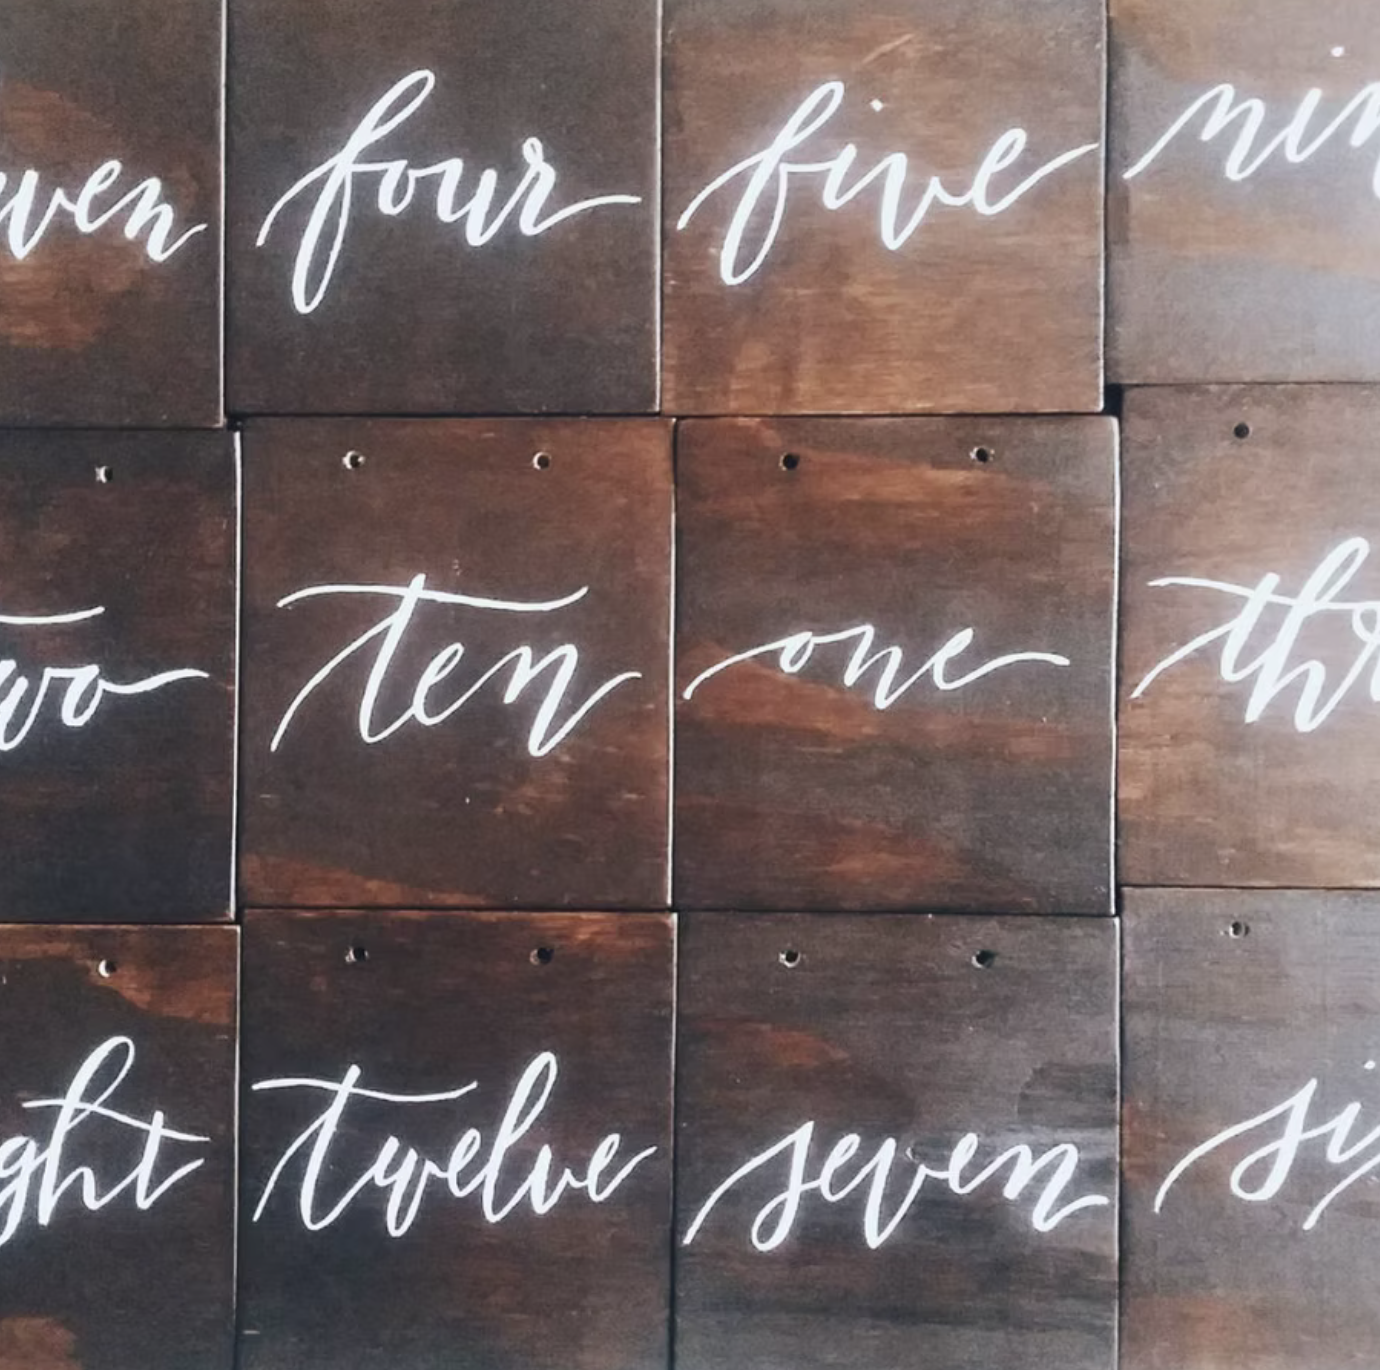 even four five nin
wo ten one thr
ght twelve seven si